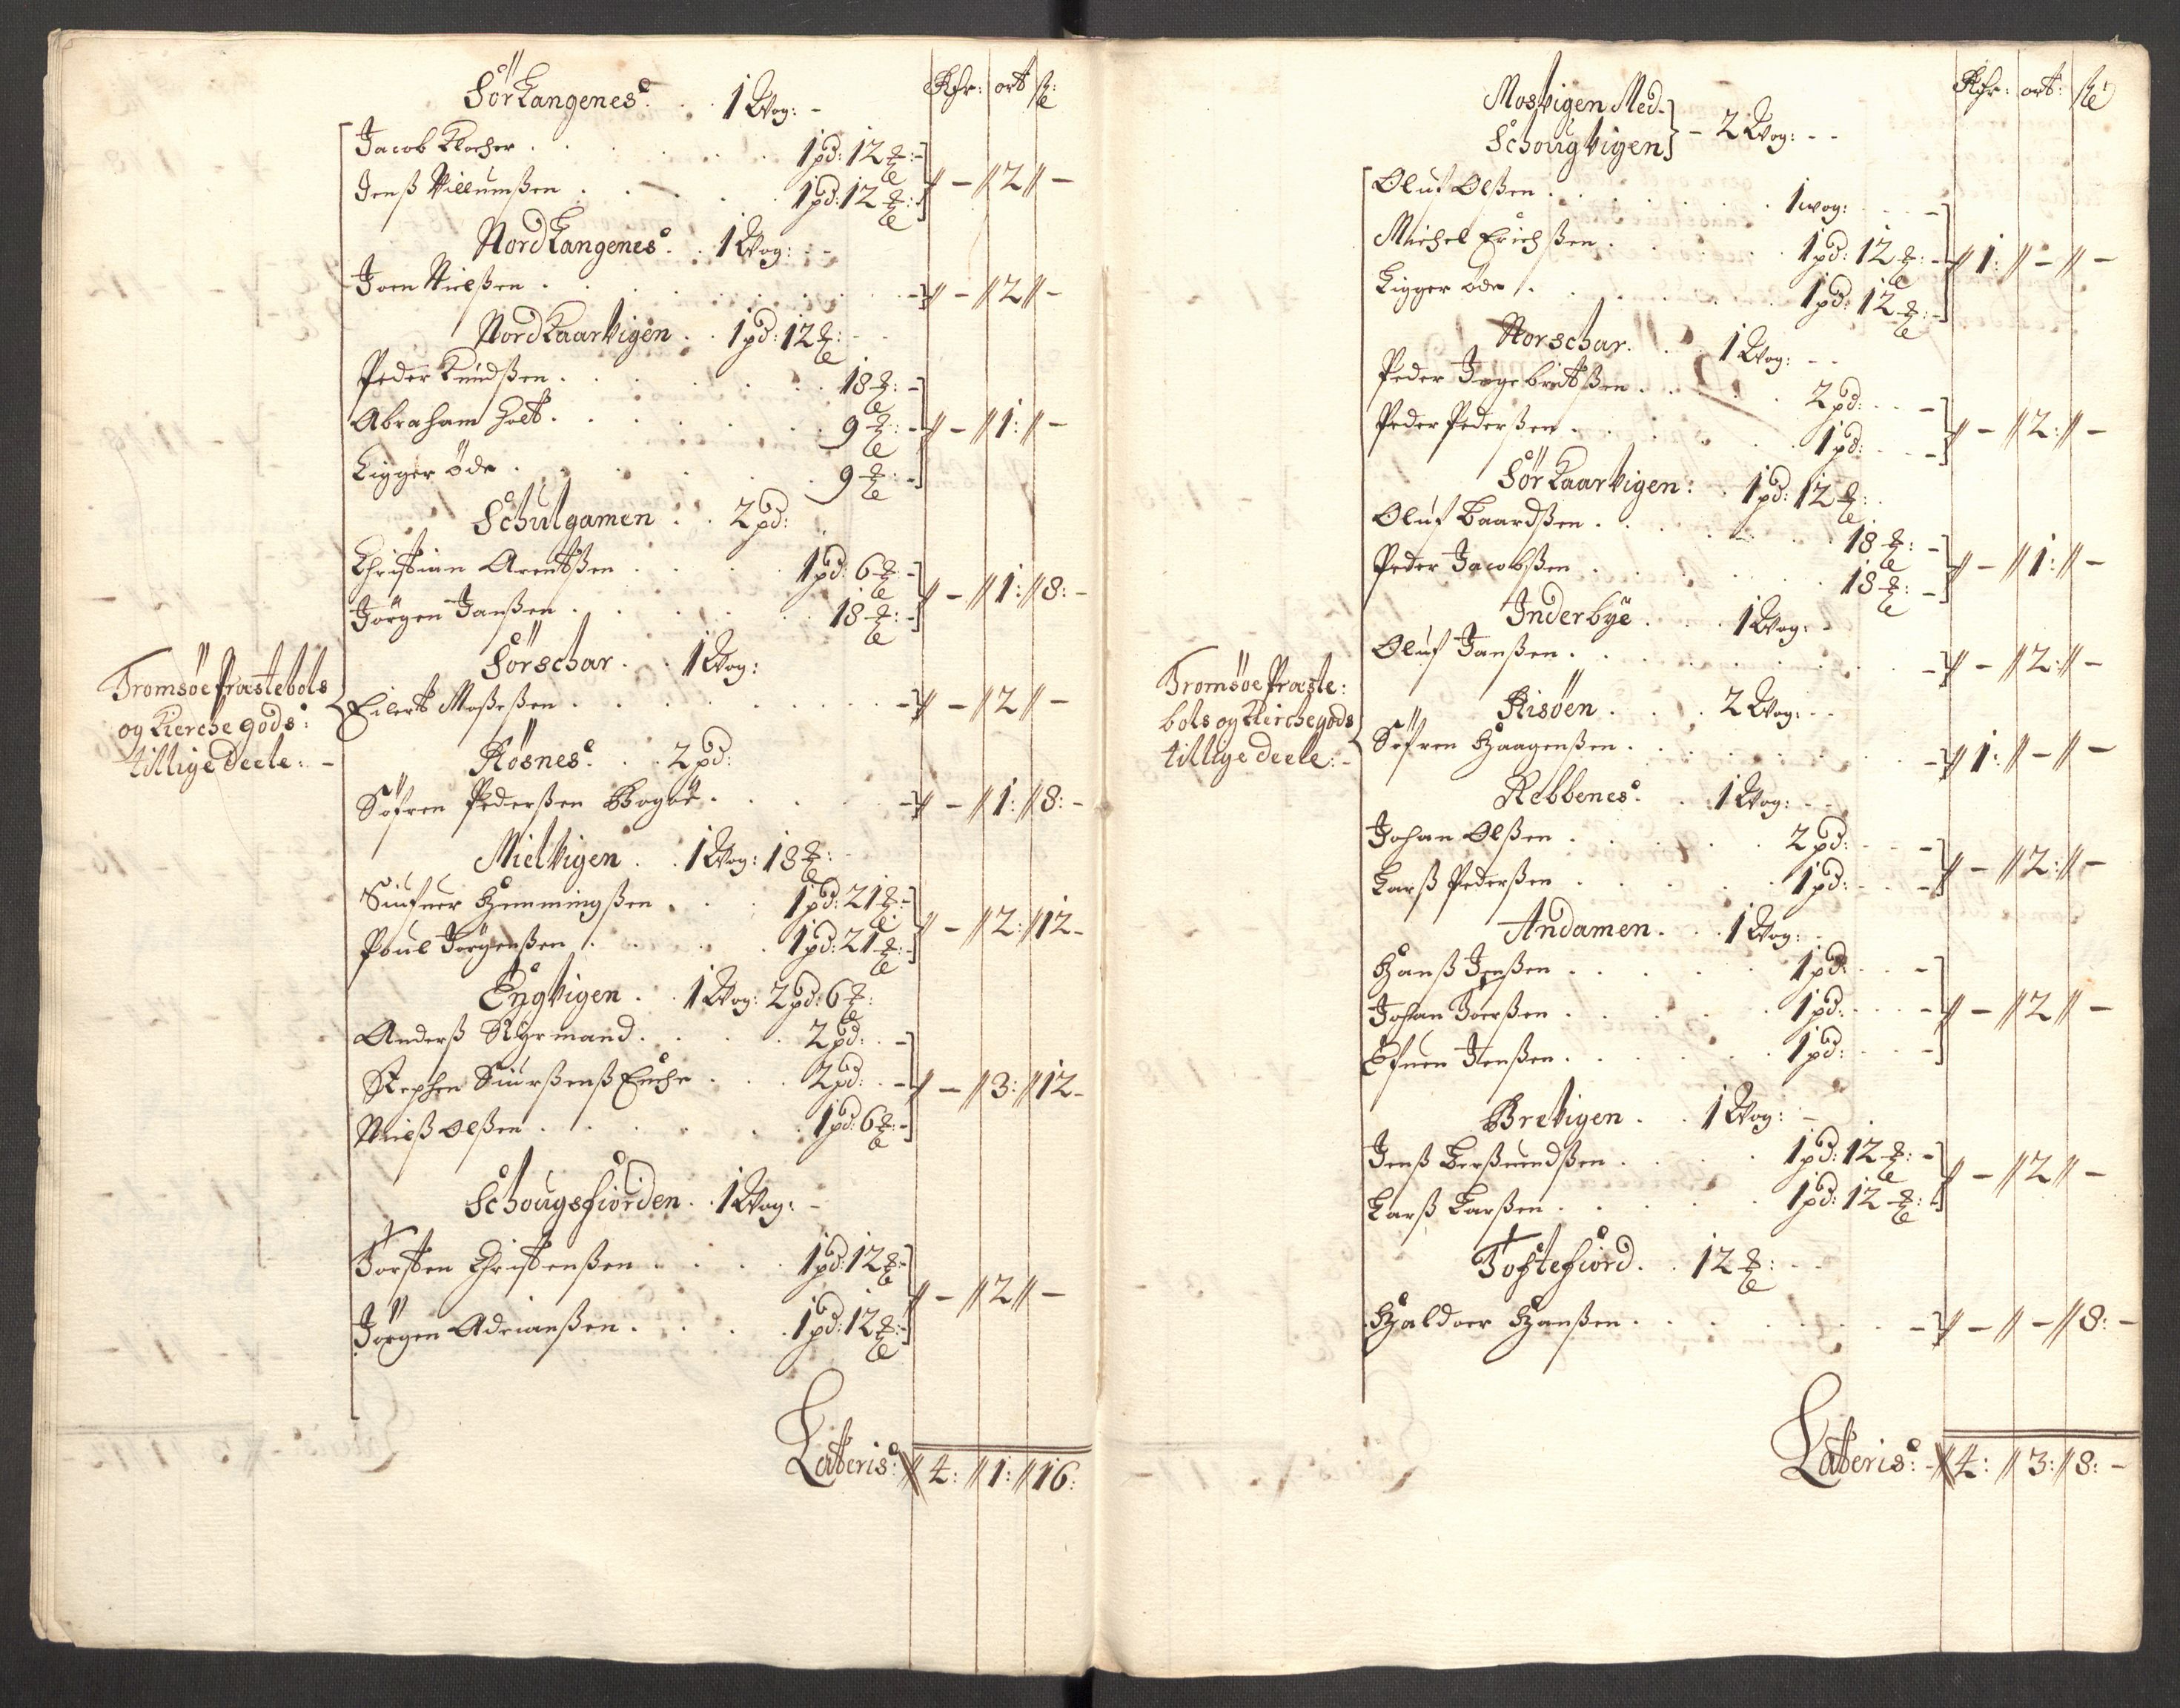 Rdr: ort ß:
Sör Langenes: . . 1 Wog: -
Jacob Klocher . . . . . 1 pd: 12 ℔: -
Jenß Villumßen . . . . 1 pd: 12 ℔: - - 2 -
Nord Langenes: . . 1 Wog: -
Joen Nielßen . . . . . - 2 -
Nord Kaarvigen . . 1 pd: 12 ℔:
Peder Knudßen . . . . . 18 ℔: -
Abraham Holt . . . . . 9 ℔: - - 1: -
Ligger öde . . . . . 9 ℔: -
Schulgamen . . 2 pd:
Christian Arentßen . . . . 1 pd: 6 ℔: -
Jörgen Janßen . . . . . 18 ℔: - - 1: 8: -
Sörschar . . 1 Wog:
Tromsöe Præstebols
og Kierche gods:
tillige Deele: -
Eilert Moßeßen . . . . . - 2 -
Rösnes: . . 2 pd:
Söfren Pederßen . . . . - 1: 8: -
Mielvigen . . 1 Wog: 18 ℔:
Hemmingßen . . . 1 pd: 21 ℔: -
Poul Jörgenßen . . . . 1 pd: 21 ℔: - - 2: 12 -
Engvigen . . 1 Wog: 2 pd: 6 ℔:
Anderß Styrmand . . . . 2 pd: -
Stephen Siurßenß Enche . . . 2 pd: - - 3: 12 -
Nielß Olßen . . . . . 1 pd: 6 ℔: -
Schougsfiorden . . 1 Wog: -
Torsten Christenßen . . . . 1 pd: 12 ℔: -
Jörgen Adrianßen . . . . 1 pd: 12 ℔: - - 2 -
Lateris: 4: 1: 16:
Rdr: ort: ß
Mosvigen Med
Schougvigen - 2 Wog: - -
Oluf Olßen . . . . . 1 wog: -
Michel Erichßen . . . . 1 pd: 12 ℔: - 1: - -
Ligger öde . . . . . 1 pd: 12 ℔: -
Norschar . . 1 Wog: - -
Peder Ingebretßen . . . . 2 pd: -
Peder Pederßen . . . . . 1 pd: - - 2: -
Sör Kaarvigen: . 1 pd: 12 ℔:
Oluf Baardßen . . . . . 18 ℔: -
Peder Jacobßen . . . . . 18 ℔: - - 1: -
Inderbye . . . 1 Wog: -
Oluf Janßen . . . . . - 2: -
Tromsöe Præste:
bols og Kirchegods
tillige deele: -
Risöen . . . 2 Wog: -
Söfren Haagenßen . . . . . 1: - -
Rebbenes: . . 1 Wog: - -
Johan Olßen . . . . . 2 pd: -
Larß Pederßen . . . . . 1 pd: - - 2: -
Andamen . . . 1 Wog: -
Hanß Jenßen . . . . . 1 pd: -
Johan Joerßen . . . . . 1 pd: - - 2 -
Jenßen . . . . . 1 pd: -
Brevigen . . 1 Wog: -
Jenß . . . . 1 pd: 12 ℔: -
Larß Larßen . . . . . 1 pd: 12 ℔: - - 2 -
Toftefiord . . 12 ℔: - -
Haldoer Hanßen . . . . . - - 8: -
Lateris: - 4: 3: 8: -